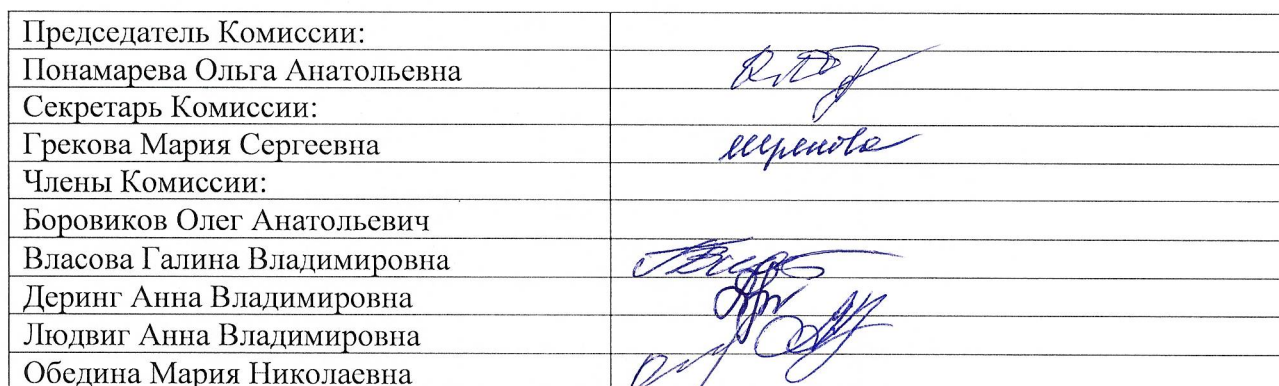 Председатель Комиссии:
Понамарева Ольга Анатольевна
Секретарь Комиссии:
Грекова Мария Сергеевна
Члены Комиссии:
Боровиков Олег Анатольевич
Власова Галина Владимировна
Деринг Анна Владимировна
Людвиг Анна Владимировна
Обедина Мария Николаевна